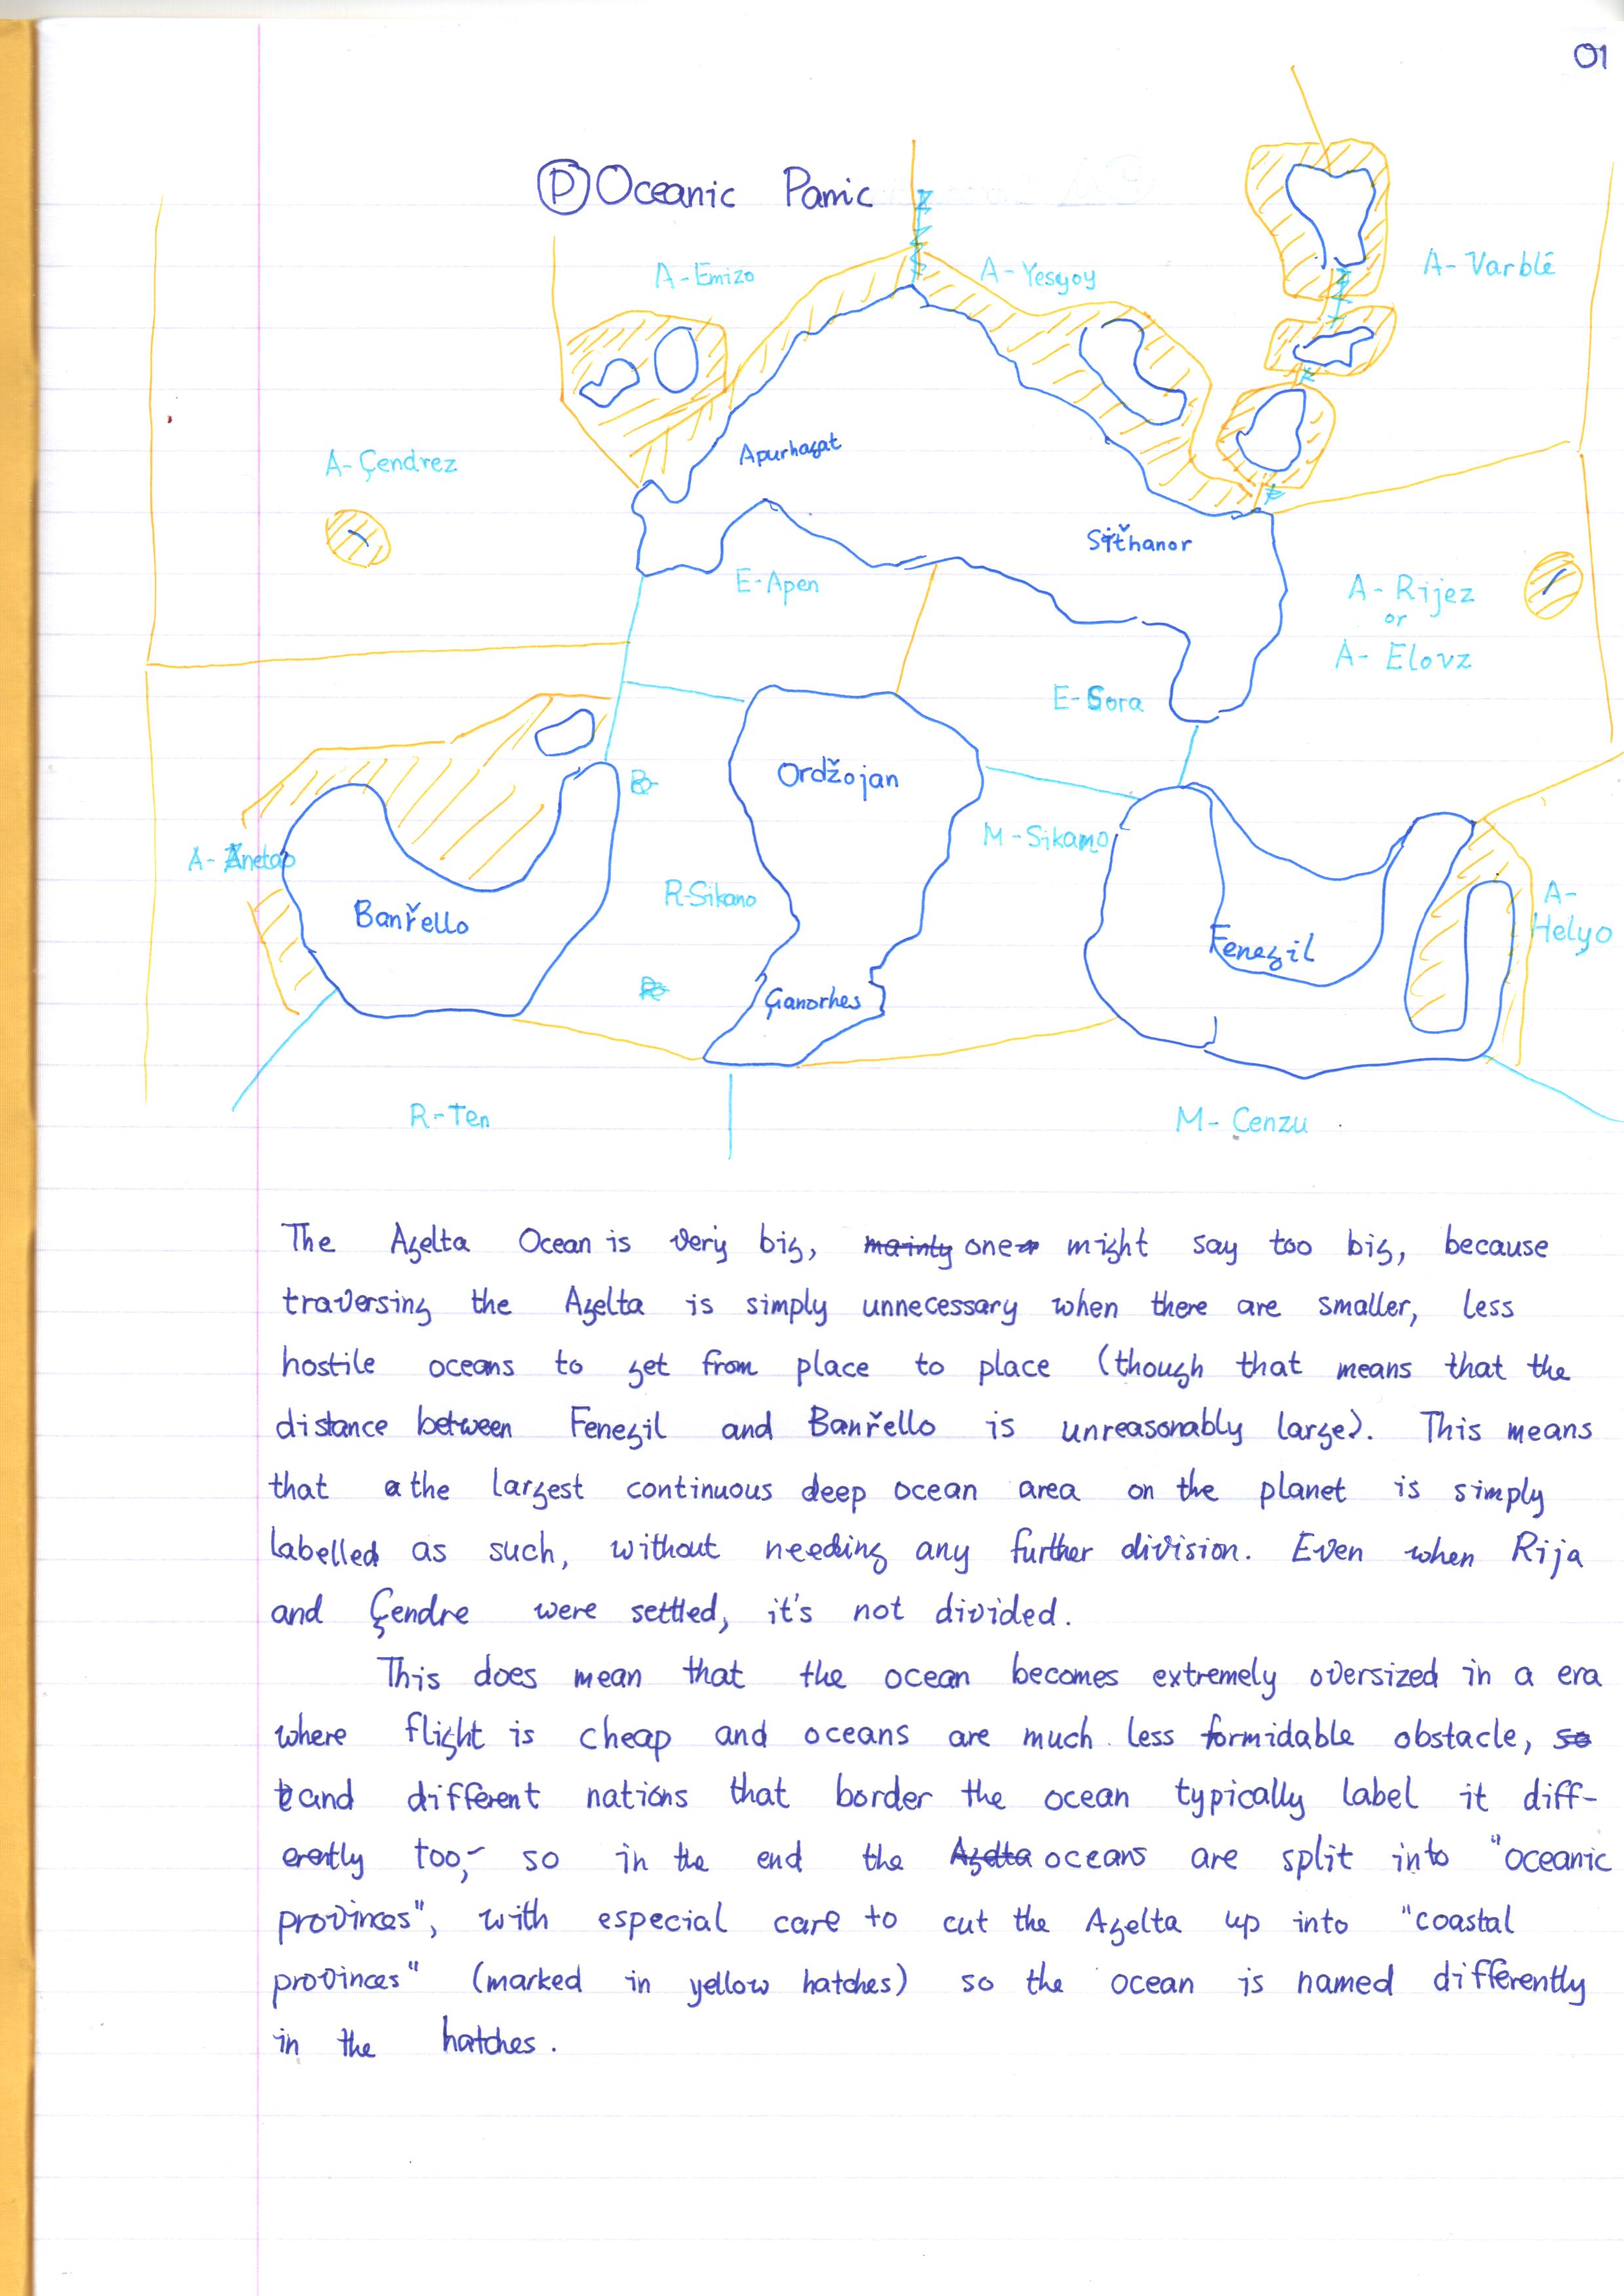 01
Ⓟ Oceanic Panic
A-Emizo
A-Yesyoy
A-Varblé
Apurhagat
A-Çendrez
Siťhanor
E-Apen
A-Rijez
or
A-Elovz
E-Gora
Ordžojan
M-Sikamo
A-Anetap
R-Sikano
Banřello
A-
Helyo
Fenegil
Çanorhes
R-Ten
M-Cenzu
The Agelta Ocean is very big, mainly one might say too big, because
traversing the Agelta is simply unnecessary when there are smaller, less
hostile oceans to get from place to place (though that means that the
distance between Fenegil and Banřello is unreasonably large). This means
that the largest continuous deep ocean area on the planet is simply
labelled as such, without needing any further division. Even when Rija
and Çendre were settled, it's not divided.
This does mean that the ocean becomes extremely oversized in a era
where flight is cheap and oceans are much less formidable obstacle, so
and different nations that border the ocean typically label it diff-
erently too, so in the end the Agelta oceans are split into "oceanic
provinces", with especial care to cut the Agelta up into "coastal
provinces" (marked in yellow hatches) so the ocean is named differently
in the hatches.